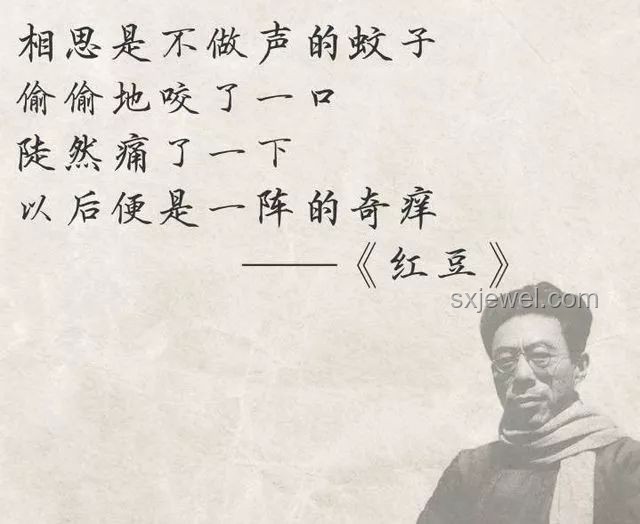 相思是不做声的蚊子
偷偷地咬了一口
陡然痛了一下
以后便是一阵的奇痒
——《红豆》
sxjewel.com